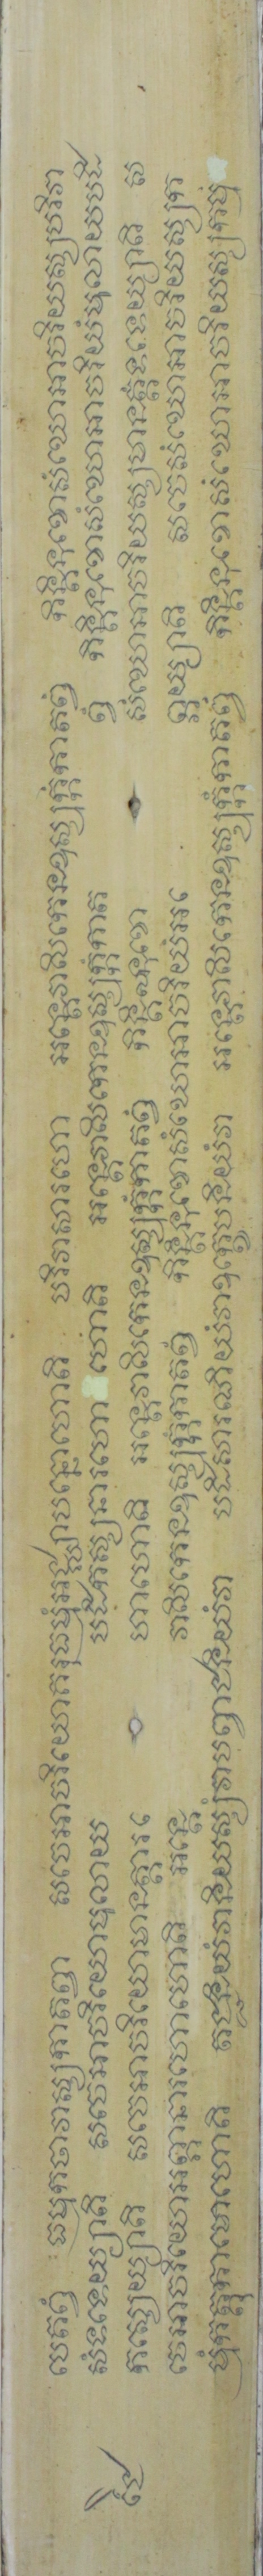 បេតព្វំ ធម្មកថាវាស្សកាតព្វា សចេអាចរិយោគរុធម្មំអជ្ឈាបន្នោហោតិ បរិវាសារហោ អន្តេវាសិកេនឧស្សុក្កំកាតព្វំ កិន្តិនុខោសំឃោអាចរិយស្សបរិវា
សំទទេយ្យាតិ សចេអាចរិយោមុលាយ បដិកស្សនារហោ ហោតិ អន្តេវាសិកេនឧស្សុក្កំកាត ព្វំ កិន្តិនុខោសំឃោអាចរិយំមុលាយបដិ
កស្សេយ្យាតិ សចេអាចរិយោមានត្តារ ហោហោតិ អន្តេវាសិកេនឧស្សុក្កំកាតព្វំ កិន្តិនុខោ សំឃោអាចរិយស្សមានត្តំទទេយ្យាតិ ស
ចេអាចរិយោអព្ភានារហោហោតិ អន្តេ វាសិកេនឧស្សុក្កំកាតព្វំ កិន្តិនុខោសំឃោអាចរិយំអ ព្ភេយ្យាតិ សចេសំឃោអាចរិយស្សក
ម្មំកត្តុកាមោហោតិ តជ្ជនិយំវានិយស្សំវាបព្វាជនិយំវា បដិសារណិយំវាឧក្ខេបនិយំវា អន្តេវាសិកេនឧស្សុក្កំកាតព្វំ កិន្តិនុខោសំឃោអាចរិយស្សកម្មំ